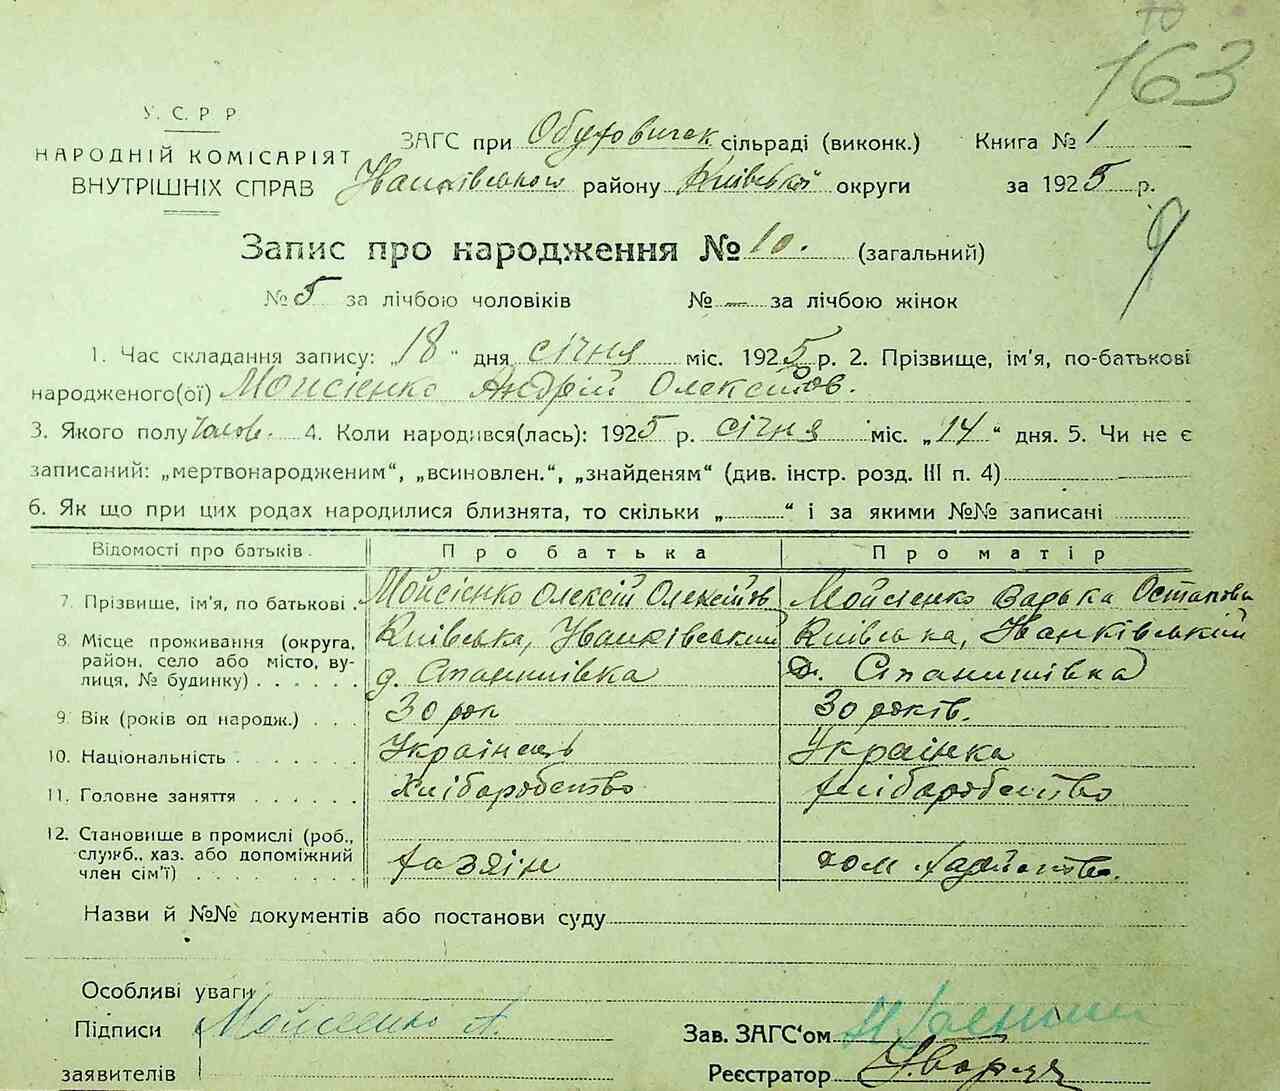 163
У. С. Р. Р.
НАРОДНІЙ КОМІСАРІЯТ
ВНУТРІШНІХ СПРАВ
ЗАГС при Обуховичек сільраді (виконк.) Книга № 1
Іванківського району Київської округи за 1925 р.
9
Запис про народження № 10. (загальний)
№ 5 за лічбою чоловіків № — за лічбою жінок
1. Час складання запису: „18" дня січня міс. 1925 р. 2. Прізвище, ім'я, по-батькові
народженого(ої) Мойсієнко Андрій Олексійов.
3. Якого полу чолов. 4. Коли народився(лась): 1925 р. січня міс. „14" дня. 5. Чи не є
записаний: „мертвонародженим", „всиновлен.", „знайденям" (див. інстр. розд. III п. 4)
6. Як що при цих родах народилися близнята, то скільки „ " і за якими №№ записані
Відомості про батьків. Про батька Про матір
7. Прізвище, ім'я, по батькові. Мойсієнко Олексій Олексійов Мойсієнко Варька Остапови
8. Місце проживання (округа, Київська, Іванківський Київська, Іванківський
район, село або місто, ву-
лиця, № будинку) д. Станишівка д. Станишівка
9. Вік (років од народж.) 30 рок 30 років.
10. Національність Українець Українка
11. Головне заняття Хліборобство хліборобство
12. Становище в промислі (роб.,
служб., хаз. або допоміжний
член сім'ї) хазяін дом. хазяйство.
Назви й №№ документів або постанови суду
Особливі уваги
Підписи Мойсіенко А.
заявителів
Зав. ЗАГС'ом
Реєстратор